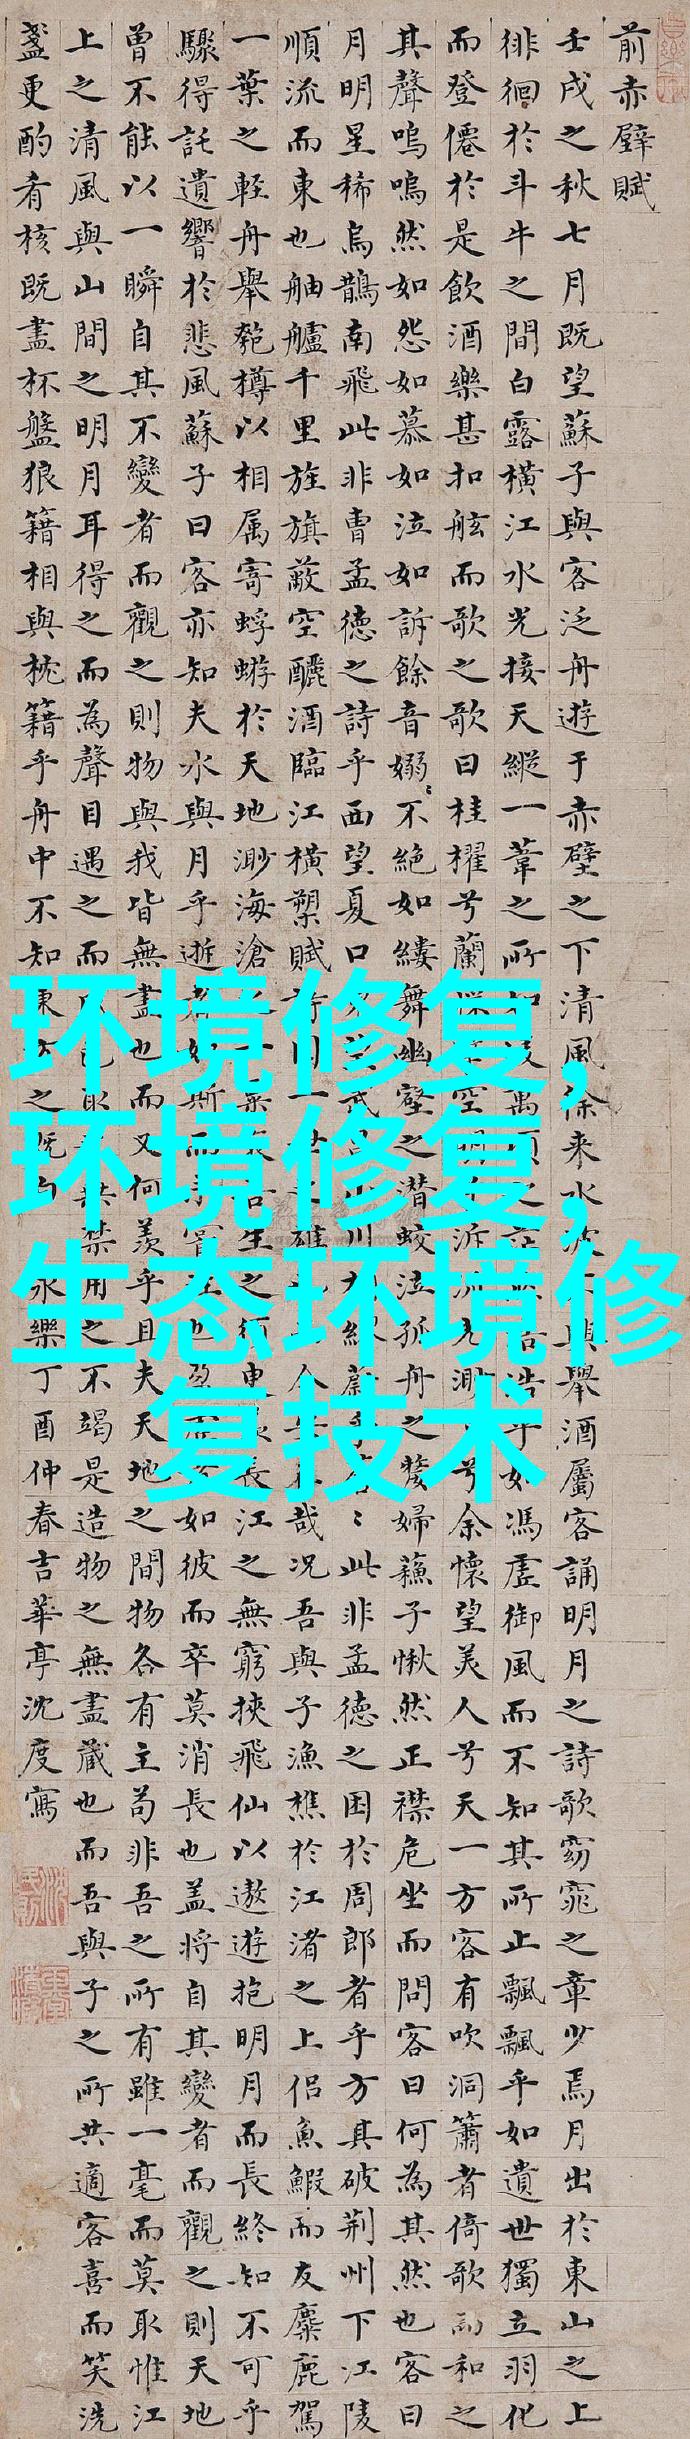 前赤壁賦
壬戌之秋七月既望蘇子與客泛舟遊于赤壁之下清風徐来水波興舉酒屬客誦明月之詩歌窈窕之章少焉月出於東山之上
徘徊於斗牛之間白露橫江水光接天縱一葦之所如萬頃之浩乎如馮虛御風而不知其所止飄飄乎如遺世獨立羽化
而登僊於是飲酒樂甚扣舷而歌之歌曰桂櫂兮蘭空泝渺兮余懷望美人兮天一方客有吹洞簫者倚歌而和之
其聲嗚嗚然如怨如慕如泣如訴餘音嫋〻不絕如縷舞幽壑之潛蛟泣孤舟之嫠婦蘇子愀然正襟危坐而問客曰何為其然也客曰
月明星稀烏鵲南飛此非曹孟德之詩乎西望夏口武山川繆鬱乎〻此非孟德之困於周郎者乎方其破荊州下江陵
順流而東也舳艫千里旌旗蔽空釃酒臨江橫槊賦詩固一世之雄今哉況吾與子漁樵於江渚之上侶魚鰕而友麋鹿駕
一葉之輕舟舉匏樽以相属寄蜉蝣於天地渺海滄一粟吾生之須臾長江之無窮挾飛仙以遨遊抱明月而長終知不可乎
驟得託遺響於悲風蘇子曰客亦知夫水與月乎逝者如斯而嘗也盈如彼而卒莫消長也盖將自其變者而觀之則天地
曾不能以一瞬自其不變者而觀之則物與我皆無盡也而又何羨乎且夫天地之間物各有主苟非吾之所有雖一毫而莫取惟江
上之清風與山間之明月耳得之而為聲目遇之而色取無禁用之不竭是造物之無盡藏也而吾與子之所共適客喜而笑洗
盞更酌肴核既盡杯盤狼籍相與枕籍乎舟中不知東之既白永樂丁酉仲春吉華亭沈度寫
环境修复,
环境修复,
生态环境修
复技术